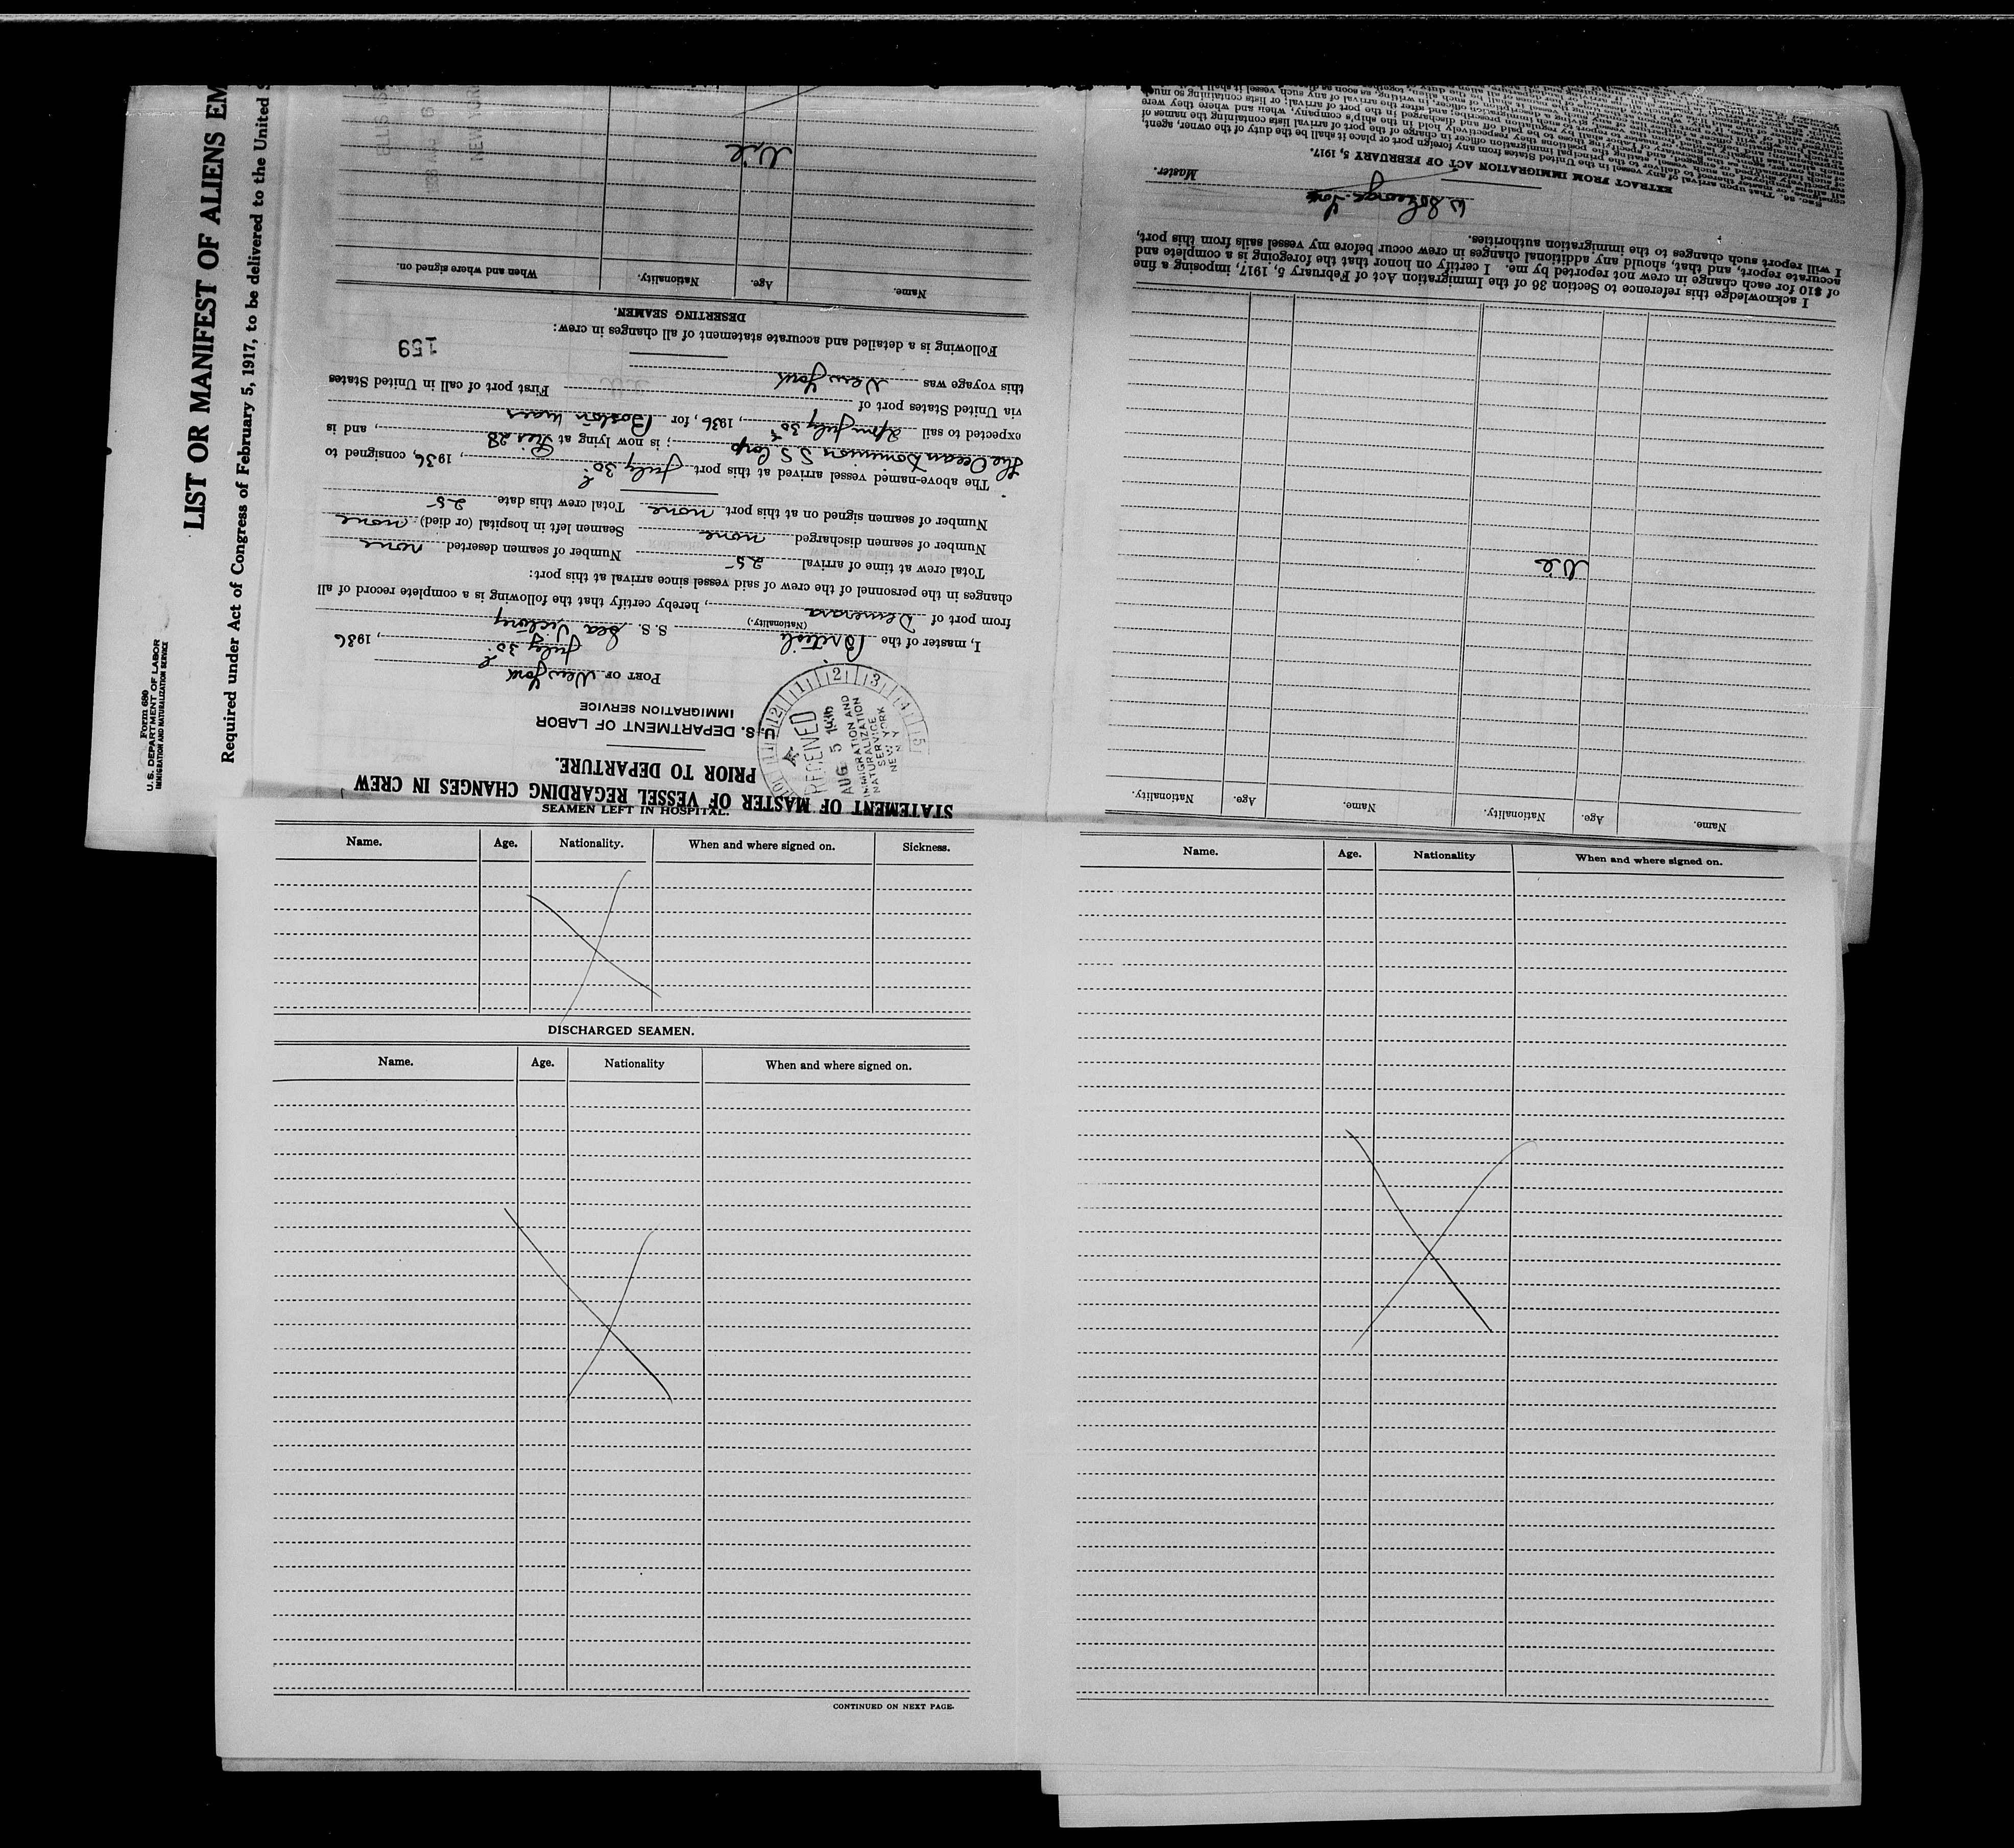 Form 680
U. S. DEPARTMENT OF LABOR
IMMIGRATION AND NATURALIZATION SERVICE
LIST OR MANIFEST OF ALIENS EM
Required under Act of Congress of February 5, 1917, to be delivered to the United S
STATEMENT OF MASTER OF VESSEL REGARDING CHANGES IN CREW
PRIOR TO DEPARTURE.
U. S. DEPARTMENT OF LABOR
IMMIGRATION SERVICE
RECEIVED
AUG 5
IMMIGRATION AND
NATURALIZATION
SERVICE
NEW YORK
N Y
PORT OF New York
July 30, 1936
I, master of the British S. S. Sea Victory
(Nationality.)
from port of Demerara, hereby certify that the following is a complete record of all
changes in the personnel of the crew of said vessel since arrival at this port:
Total crew at time of arrival 25 Number of seamen deserted none
Number of seamen discharged none Seamen left in hospital (or died) none
Number of seamen signed on at this port none Total crew this date 25
The above-named vessel arrived at this port July 30, 1936, consigned to
The Ocean Dominion S S Corp; is now lying at Pier 28, and is
expected to sail July 30, 1936, for Boston Mass
via United States port of
First port of call in United States
this voyage was New York
159
Following is a detailed and accurate statement of all changes in crew:
DESERTING SEAMEN.
Name. Age. Nationality. When and where signed on.
Nil
ELLIS
NEW YOR
Name. Age. Nationality. Name. Age. Nationality.
Nil
I acknowledge this reference to Section 36 of the Immigration Act of February 5, 1917, imposing a fine
of $10 for each change in crew not reported by me. I certify on honor that the foregoing is a complete and
accurate report, and that, should any additional changes in crew occur before my vessel sails from this port,
I will report such changes to the immigration authorities.
Master.
EXTRACT FROM IMMIGRATION ACT OF FEBRUARY 5, 1917.
Sec. 36. That upon arrival of any vessel in the United States from any foreign port or place it shall be the duty of the owner, agent,
SEAMEN LEFT IN HOSPITAL.
Name. Age. Nationality. When and where signed on. Sickness.
DISCHARGED SEAMEN.
Name. Age. Nationality When and where signed on.
CONTINUED ON NEXT PAGE.
Name. Age. Nationality When and where signed on.